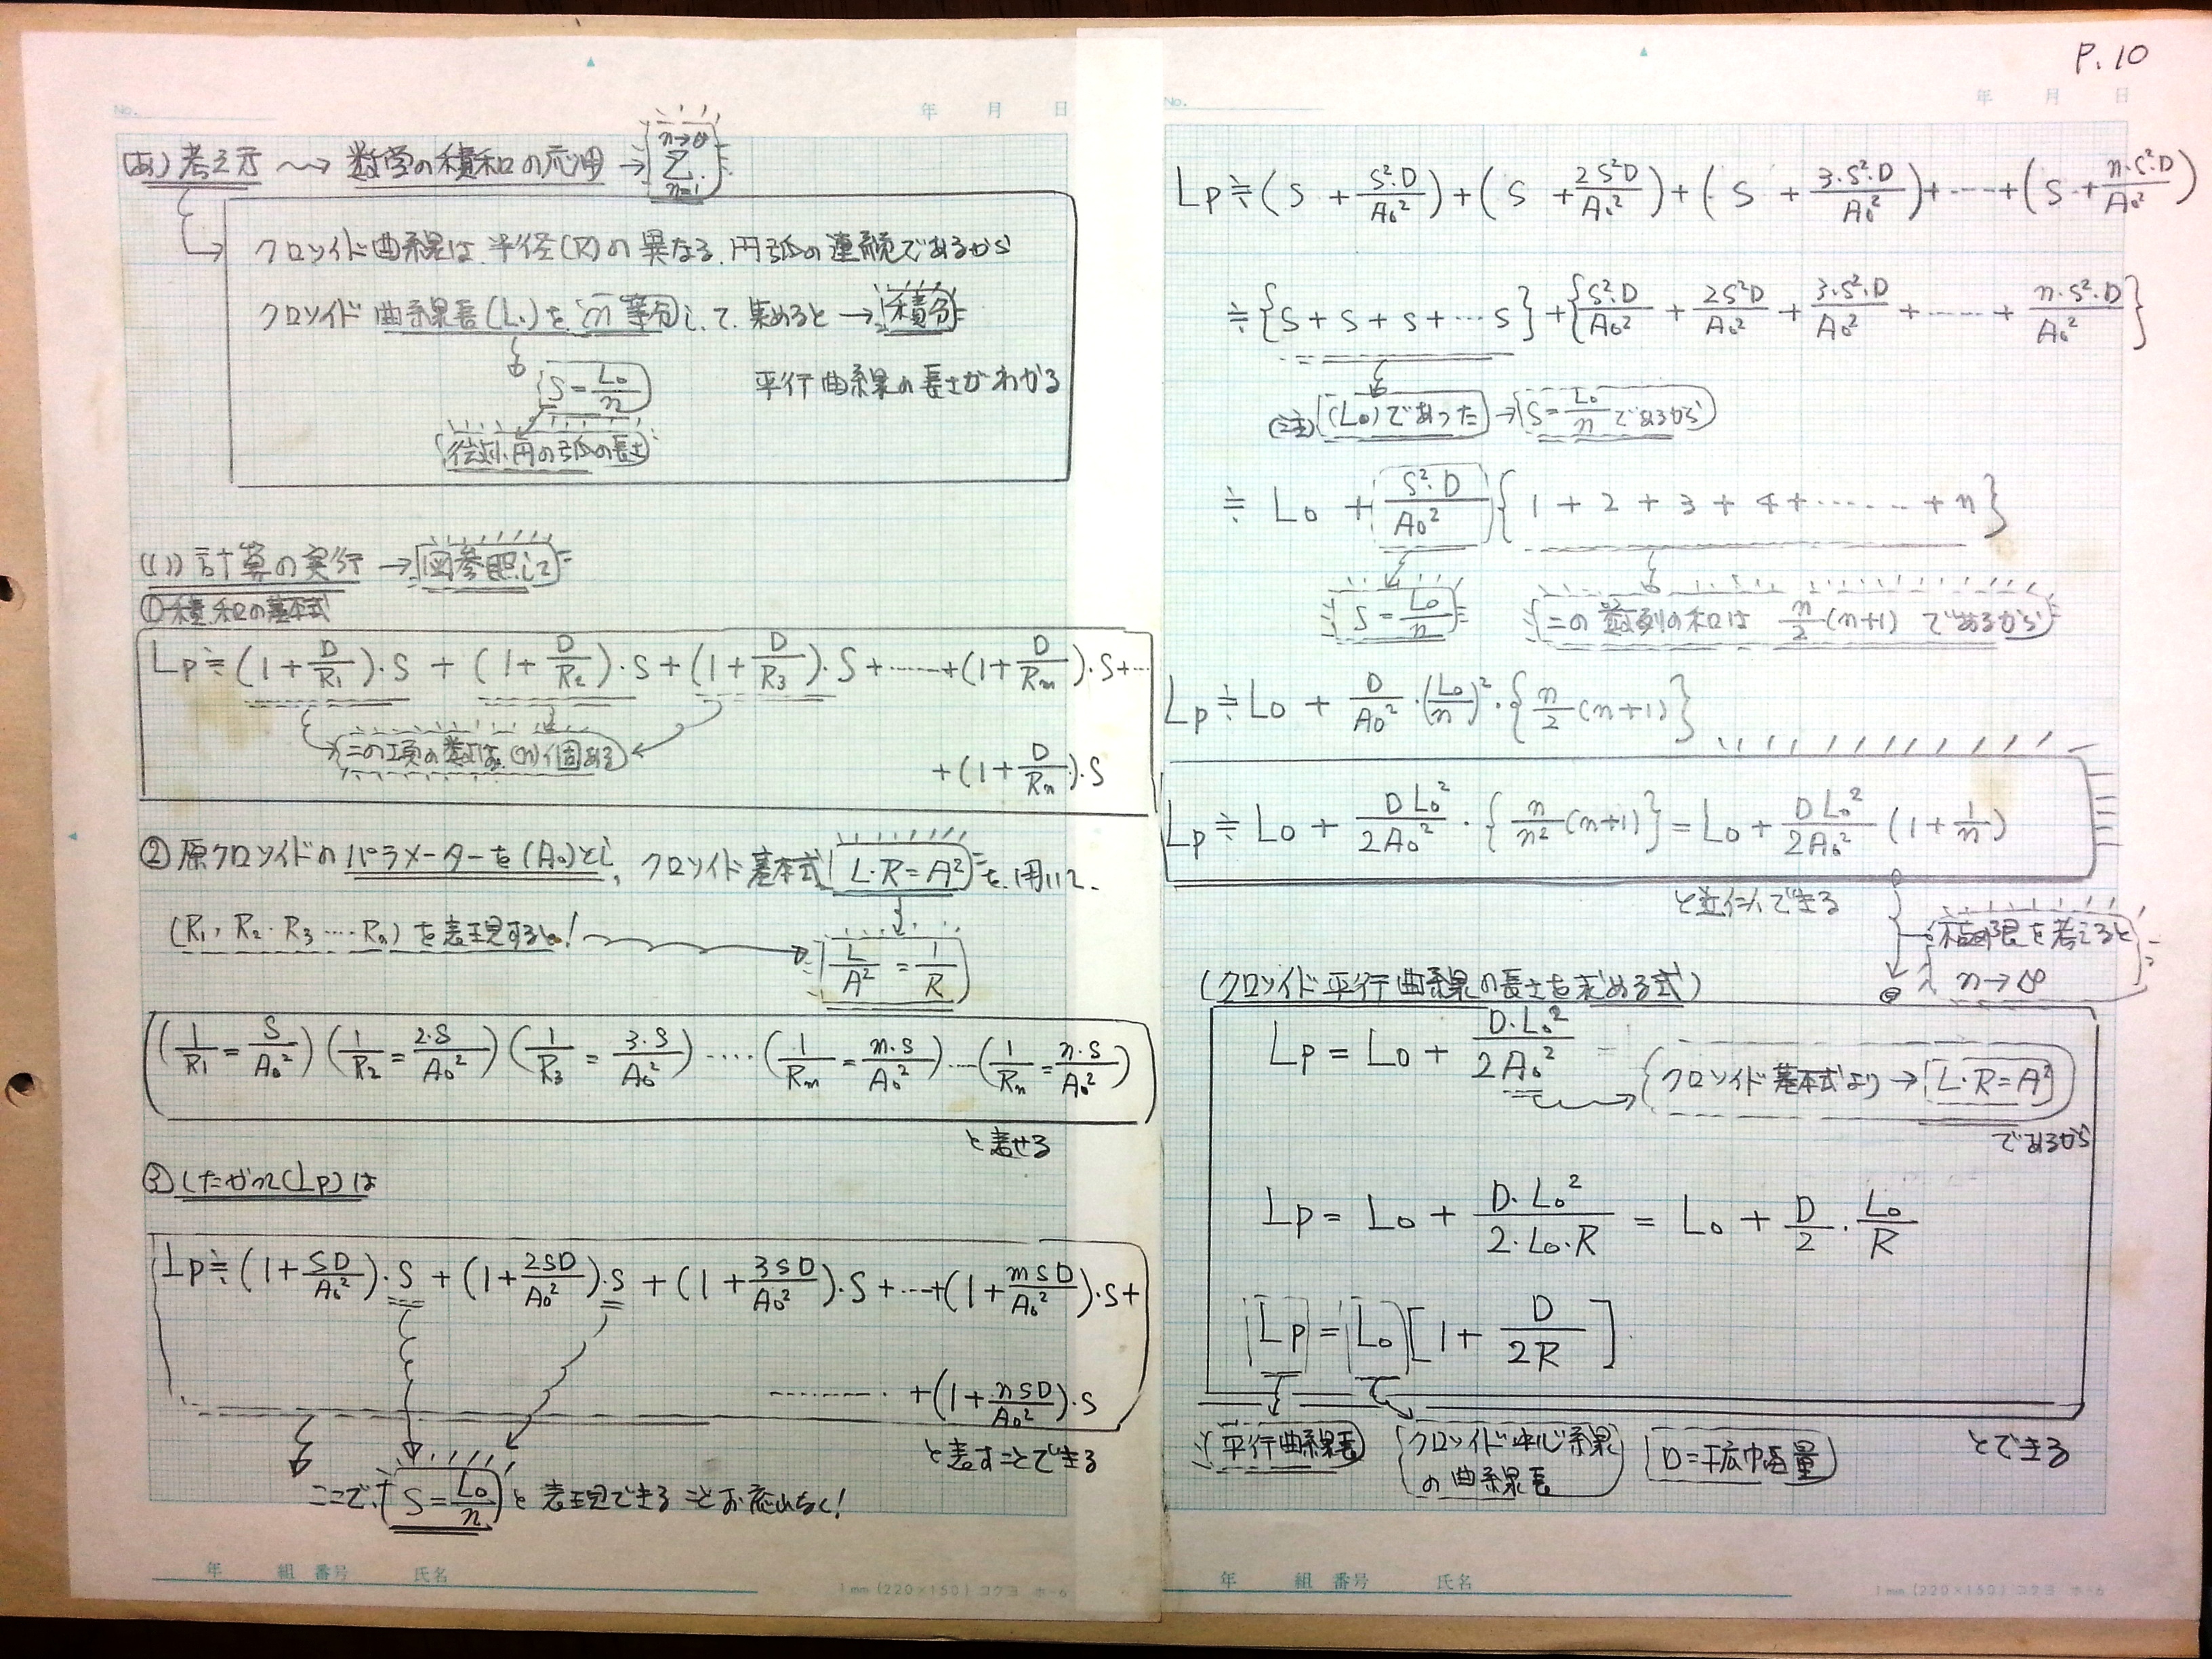 P.10
No. 年 月 日
(あ) 考え方 → 数学の積和の応用 → Σ n→∞ n=1
クロソイド曲線は、半径(R)の異なる、円弧の連続であるから
クロソイド 曲線長(L.)を n等分して、集めると → 積分
S = L₀/n
平行曲線の長さがわかる
微小円の弧の長さ
(い) 計算の実行 → 図参照して
① 積和の基本式
Lp≒(1+D/R₁)·S + (1+D/R₂)·S + (1+D/R₃)·S + ……+(1+D/Rm)·S+…
この項の数は、(n)個ある
+(1+D/Rn)·S
② 原クロソイドのパラメーターを(A₀)とし、クロソイド基本式 L·R=A² を、用いて、
(R₁, R₂·R₃ ···· Rn) を表現すると!
L/A² = 1/R
(1/R₁ = S/A₀²) (1/R₂ = 2·S/A₀²) (1/R₃ = 3·S/A₀²) ···· (1/Rm = m·S/A₀²) ···(1/Rn = n·S/A₀²)
と表せる
③ したがって(Lp)は
Lp≒(1+SD/A₀²)·S + (1+2SD/A₀²)·S + (1+3SD/A₀²)·S + ···+(1+mSD/A₀²)·S+
·········· +(1+nSD/A₀²)·S
と表すことできる
ここで、S = L₀/n と 表現できる ことお忘れなく!
年 組 番号 氏名
1mm (220×150) コクヨ ホ-6
No. 年 月 日
Lp≒(S + S²·D/A₀²)+(S + 2S²D/A₀²)+(S + 3·S²·D/A₀²)+····+(S + n·S²·D/A₀²)
≒{S + S + S + ··· S} + {S²·D/A₀² + 2S²D/A₀² + 3·S²·D/A₀² + ······ + n·S²·D/A₀²}
(注) (L₀)であった → S = L₀/n であるから
≒ L₀ + S²·D/A₀² {1 + 2 + 3 + 4 + ······· + n}
S = L₀/n
この 数列の和は n/2 (n+1) であるから
Lp≒L₀ + D/A₀² ·(L₀/n)²·{n/2 (n+1)}
Lp≒L₀ + DL₀²/2A₀² · {n/n² (n+1)} = L₀ + DL₀²/2A₀² (1+1/n)
と近似できる
極限を考えると
n→∞
(クロソイド平行曲線の長さを求める式)
Lp = L₀ + D·L₀²/2A₀²
クロソイド基本式より → L·R=A²
であるから
Lp = L₀ + D·L₀²/2·L₀·R = L₀ + D/2 · L₀/R
Lp = L₀ [1 + D/2R]
平行曲線長
クロソイド中心線
の曲線長
D=拡巾幅量
とできる
年 組 番号 氏名
1mm (220×150) コクヨ ホ-6